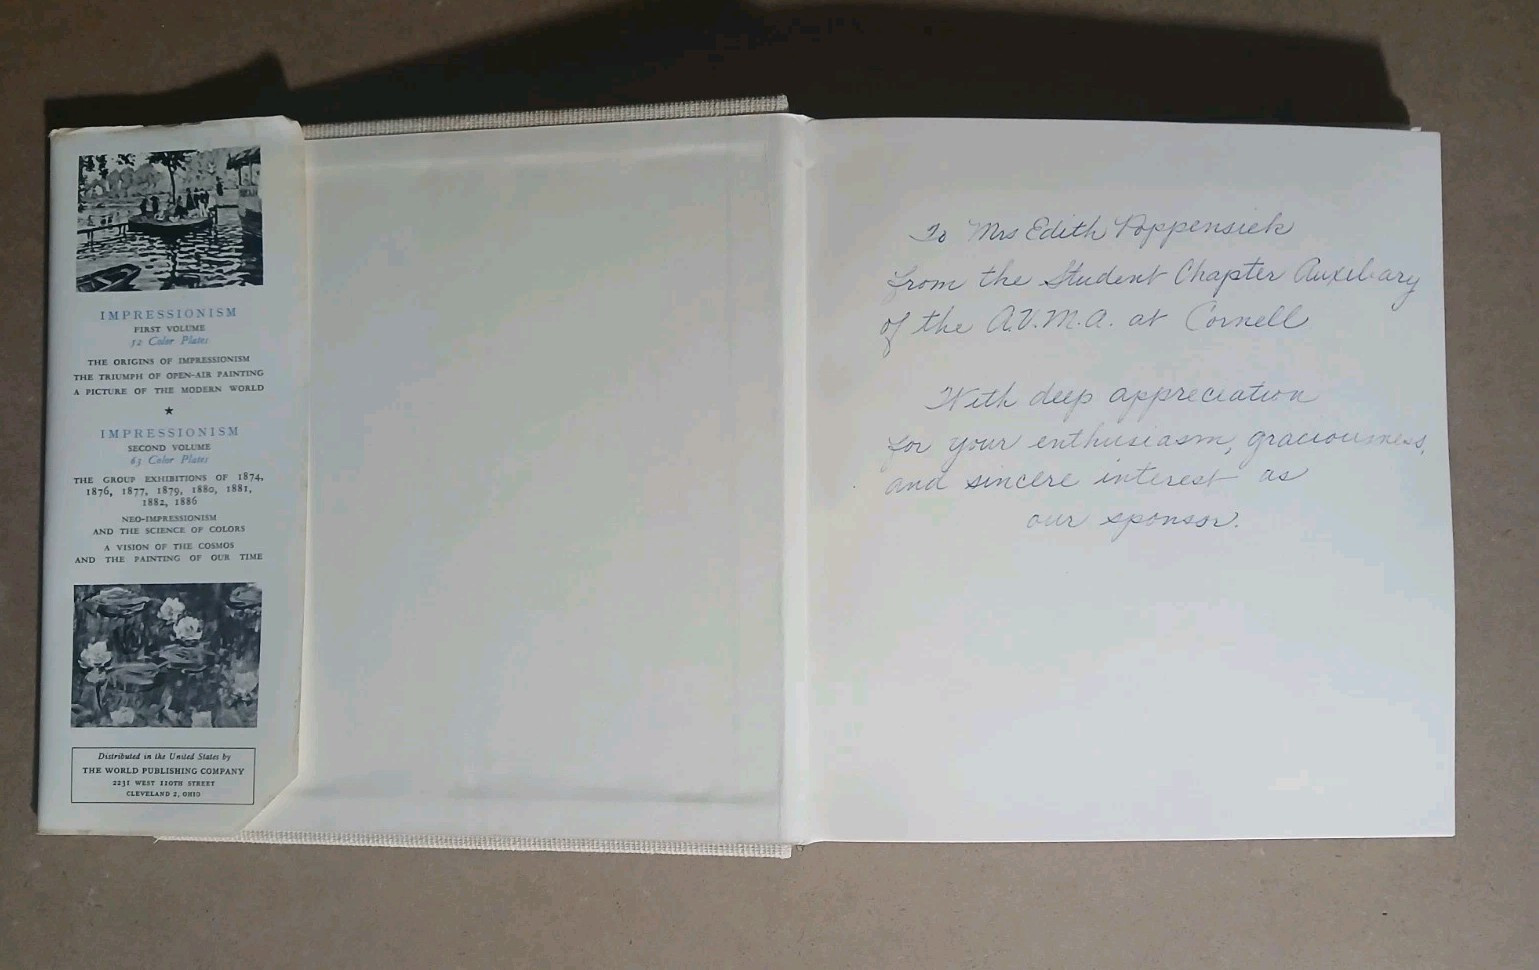 IMPRESSIONISM
FIRST VOLUME
52 Color Plates
THE ORIGINS OF IMPRESSIONISM
THE TRIUMPH OF OPEN-AIR PAINTING
A PICTURE OF THE MODERN WORLD
★
IMPRESSIONISM
SECOND VOLUME
63 Color Plates
THE GROUP EXHIBITIONS OF 1874,
1876, 1877, 1879, 1880, 1881,
1882, 1886
NEO-IMPRESSIONISM
AND THE SCIENCE OF COLORS
A VISION OF THE COSMOS
AND THE PAINTING OF OUR TIME
Distributed in the United States by
THE WORLD PUBLISHING COMPANY
2231 WEST 110TH STREET
CLEVELAND 2, OHIO
To Mrs Edith Poppensiek
from the Student Chapter Auxiliary
of the A.V.M.A. at Cornell
With deep appreciation
for your enthusiasm, graciousness,
and sincere interest as
our sponsor.